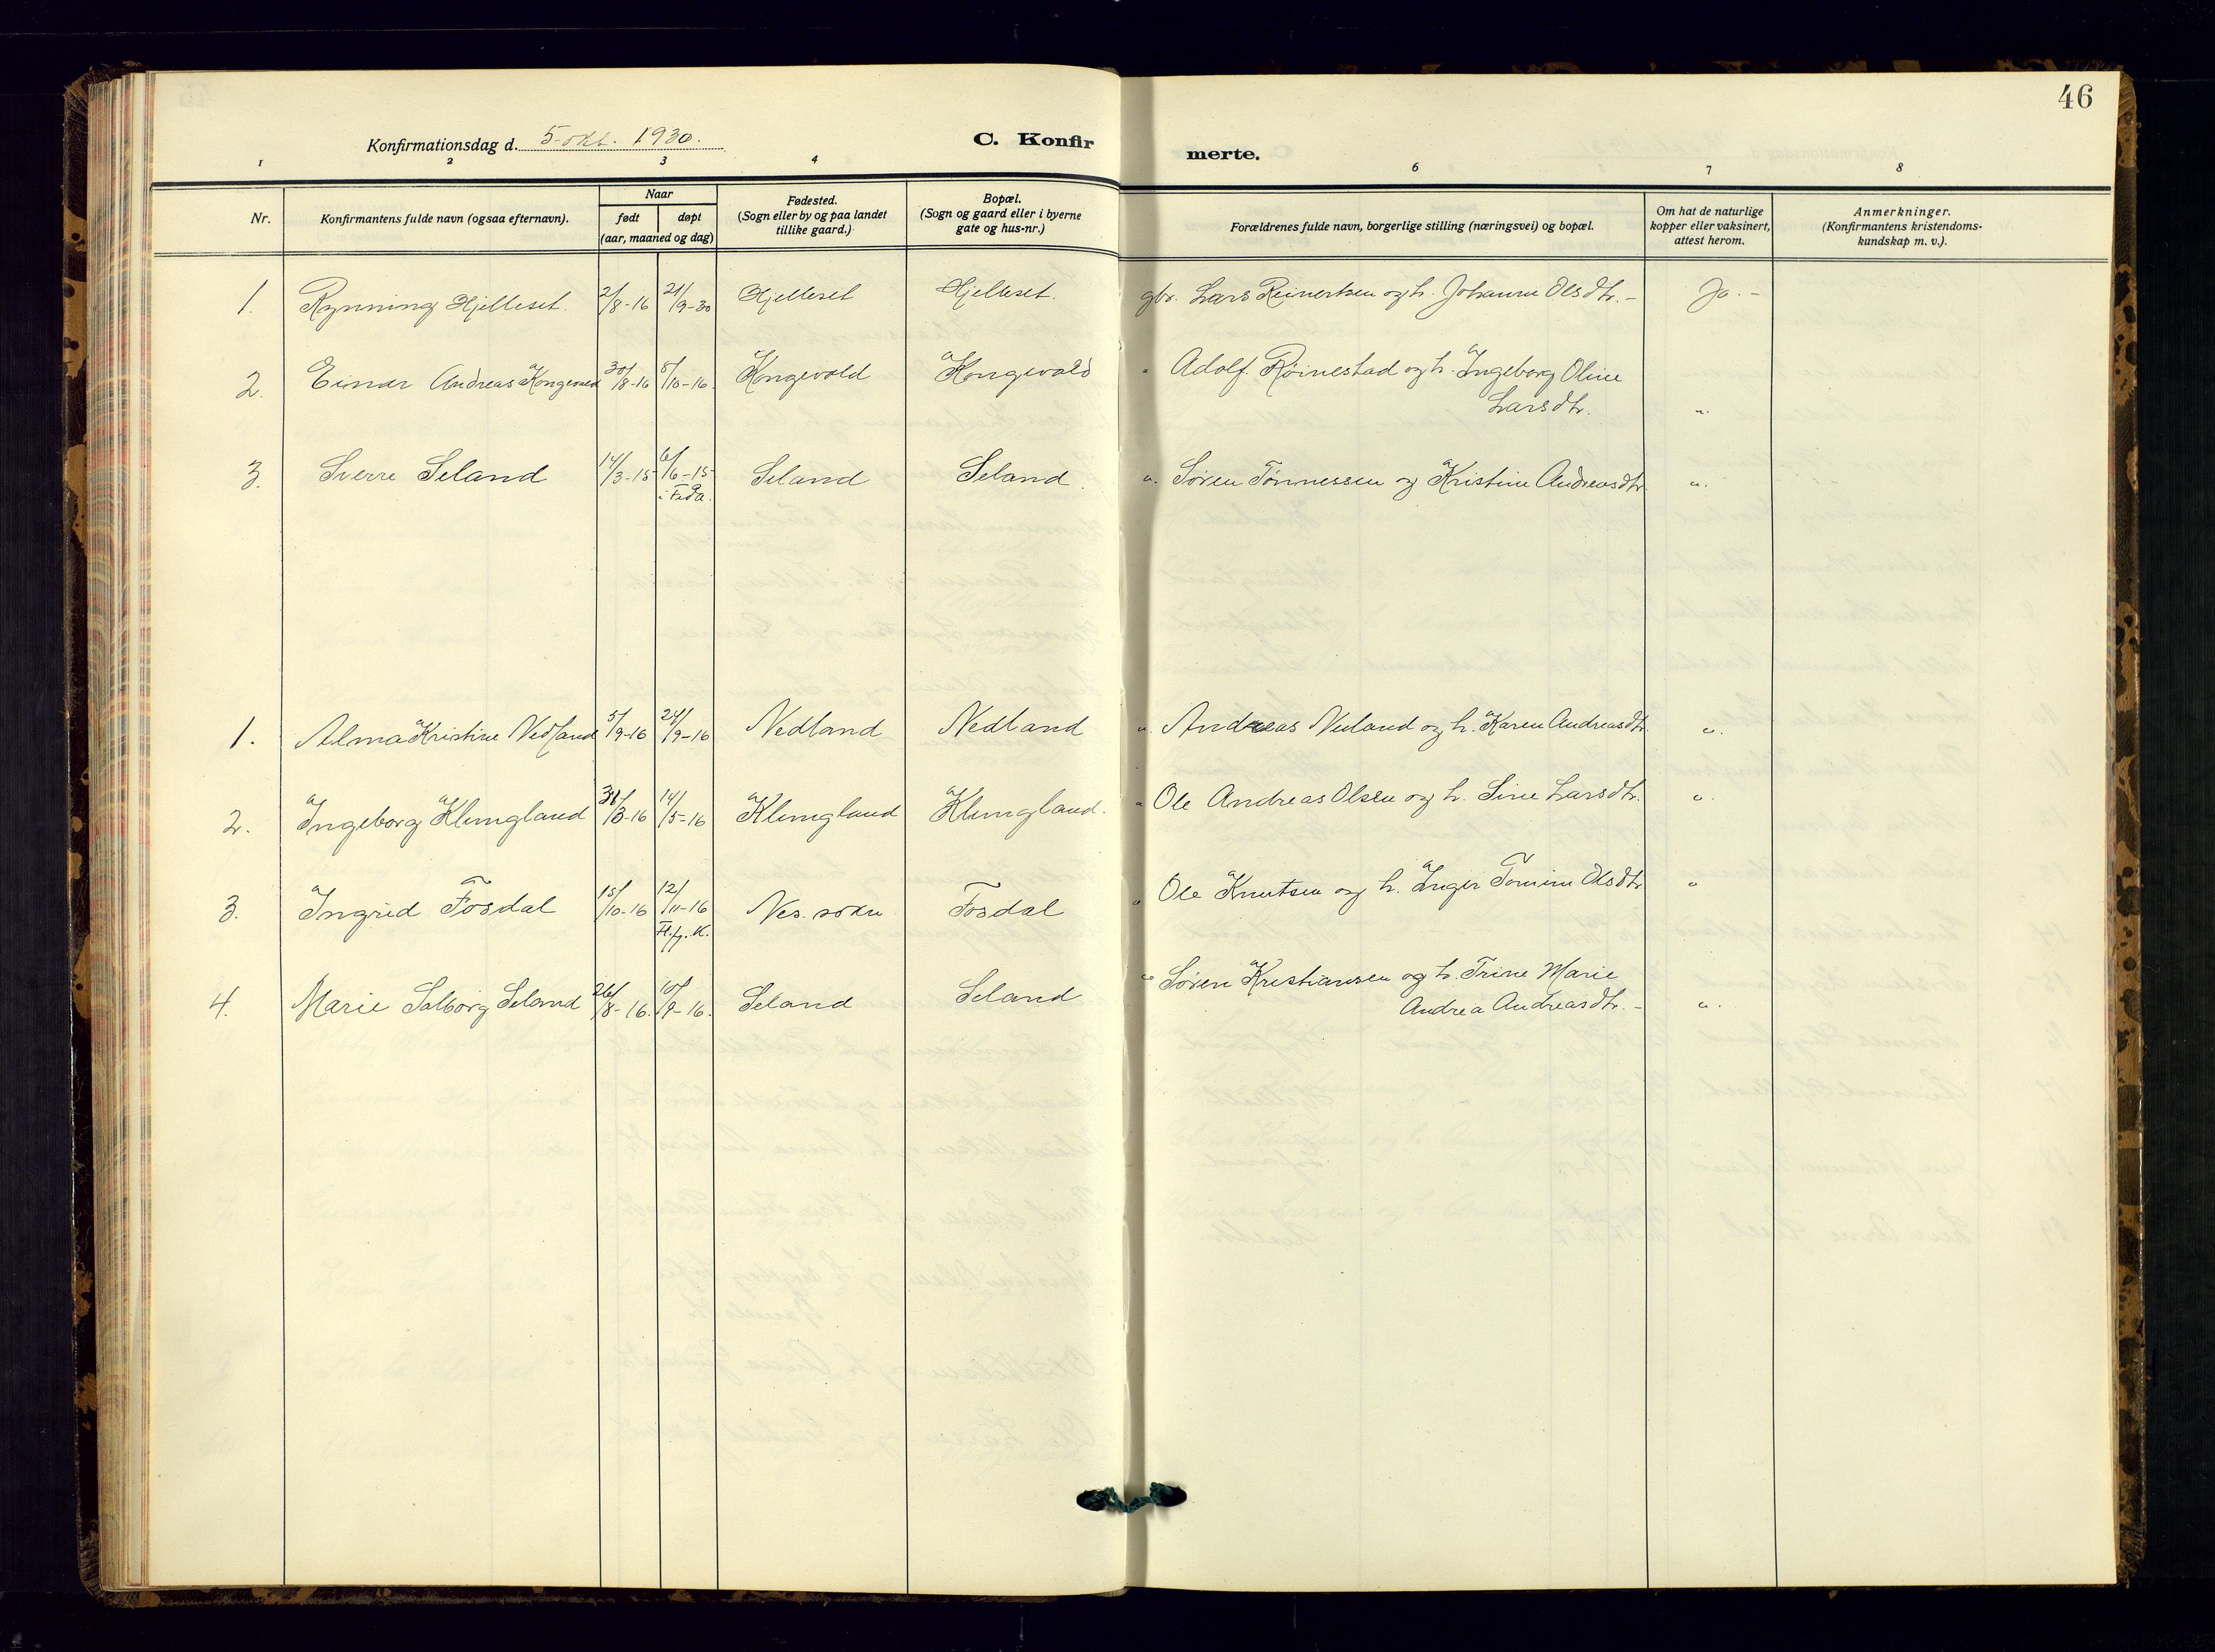 46
Konfirmationsdag d. 5 okt. 1930.
C. Konfir merte.
1 2 3 4 6 7 8
Nr.
Konfirmantens fulde navn (ogsaa efternavn).
Naar
født døpt
(aar, maaned og dag)
Fødested.
(Sogn eller by og paa landet
tillike gaard.)
Bopæl.
(Sogn og gaard eller i byerne
gate og hus-nr.)
Forældrenes fulde navn, borgerlige stilling (næringsvei) og bopæl.
Om hat de naturlige
kopper eller vaksinert,
attest herom.
Anmerkninger.
(Konfirmantens kristendoms-
kundskap m. v.).
1. Rynning Hjelleset. 2/8-16 21/9-30 Hjelleset Hjelleset. gbr. Lars Reinertsen og h. Johanne Olsdtr. - Ja. -
2. Einar Andreas Kongevold 30/8-16 8/10-16. Kongevold Kongevold " Adolf Røinestad og h. Ingeborg Oline
Larsdtr. "
3. Sverre Seland 14/3-15 6/6-15 Seland Seland. " Søren Tønnessen og Kristine Andreasdtr. "
i Feda.
1. Alma Kristine Nedland 5/9-16 24/9-16 Nedland Nedland " Andreas Neuland og h. Karen Andreasdtr. "
2. Ingeborg Klungland 31/3-16 14/5-16 Klungland Klungland. " Ole Andreas Olsen og h. Sine Larsdtr. "
3. Ingrid Fosdal 15/10-16 12/11-16 Nes. sokn Fosdal " Ole Knutsen og h. Inger Tomine Olsdtr "
Fl. fj. K.
4. Marie Salborg Seland 26/8-16. 10/9-16. Seland Seland " Søren Kristiansen og h. Trine Marie
Andrea Andreasdtr. - "